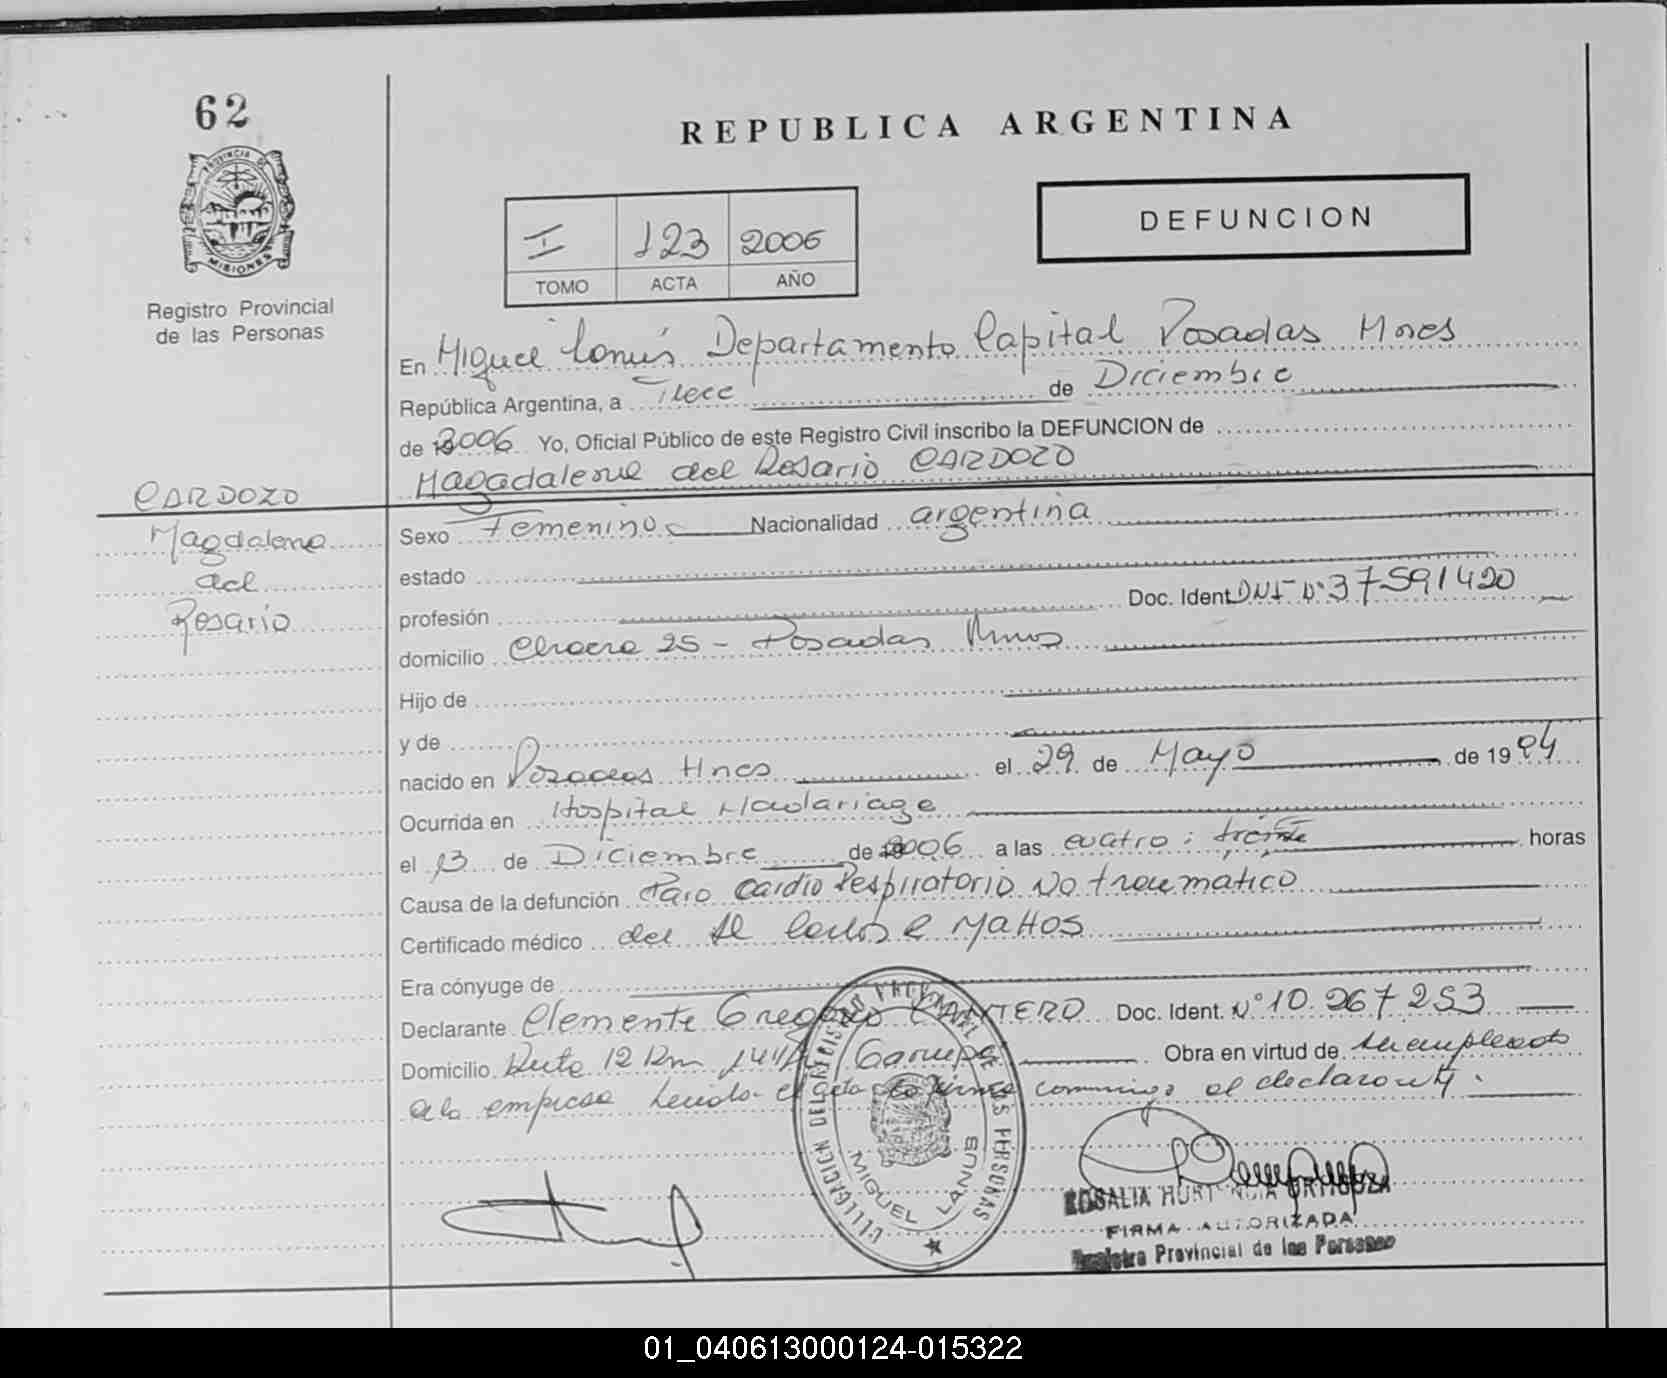 62
REPUBLICA ARGENTINA
PROVINCIA DE
MISIONES
Registro Provincial
de las Personas
I 123 2006
TOMO ACTA AÑO
DEFUNCION
En Miguel Lanús Departamento Capital Posadas Mnes
República Argentina, a Trece de Diciembre
de 2006 Yo, Oficial Público de este Registro Civil inscribo la DEFUNCION de
Magadalena del Rosario CARDOZO
CARDOZO
Magdalena
del
Rosario
Sexo Femenino Nacionalidad argentina
estado
profesión Doc. Ident. DNI N° 37591420
domicilio Chacra 25 - Posadas Mnes
Hijo de
y de
nacido en Posadas Mnes el 29 de Mayo de 1994
Ocurrida en Hospital Madariaga
el 13 de Diciembre de 2006 a las cuatro : treinta horas
Causa de la defunción Paro Cardio Respiratorio No traumatico
Certificado médico del Carlos R Mattos
Era cónyuge de
Declarante Clemente Gregorio CANTERO Doc. Ident. N° 10.267 253
Domicilio Ruta 12 Km Garupa Obra en virtud de ser empleado
de la empresa el acta la firma conmigo el declarante.
DELEGACION DEL REGISTRO PROVINCIAL DE LAS PERSONAS
MIGUEL LANUS
ROSALIA HORTENCIA ORTIGOZA
FIRMA AUTORIZADA
Registro Provincial de las Personas
01_040613000124-015322